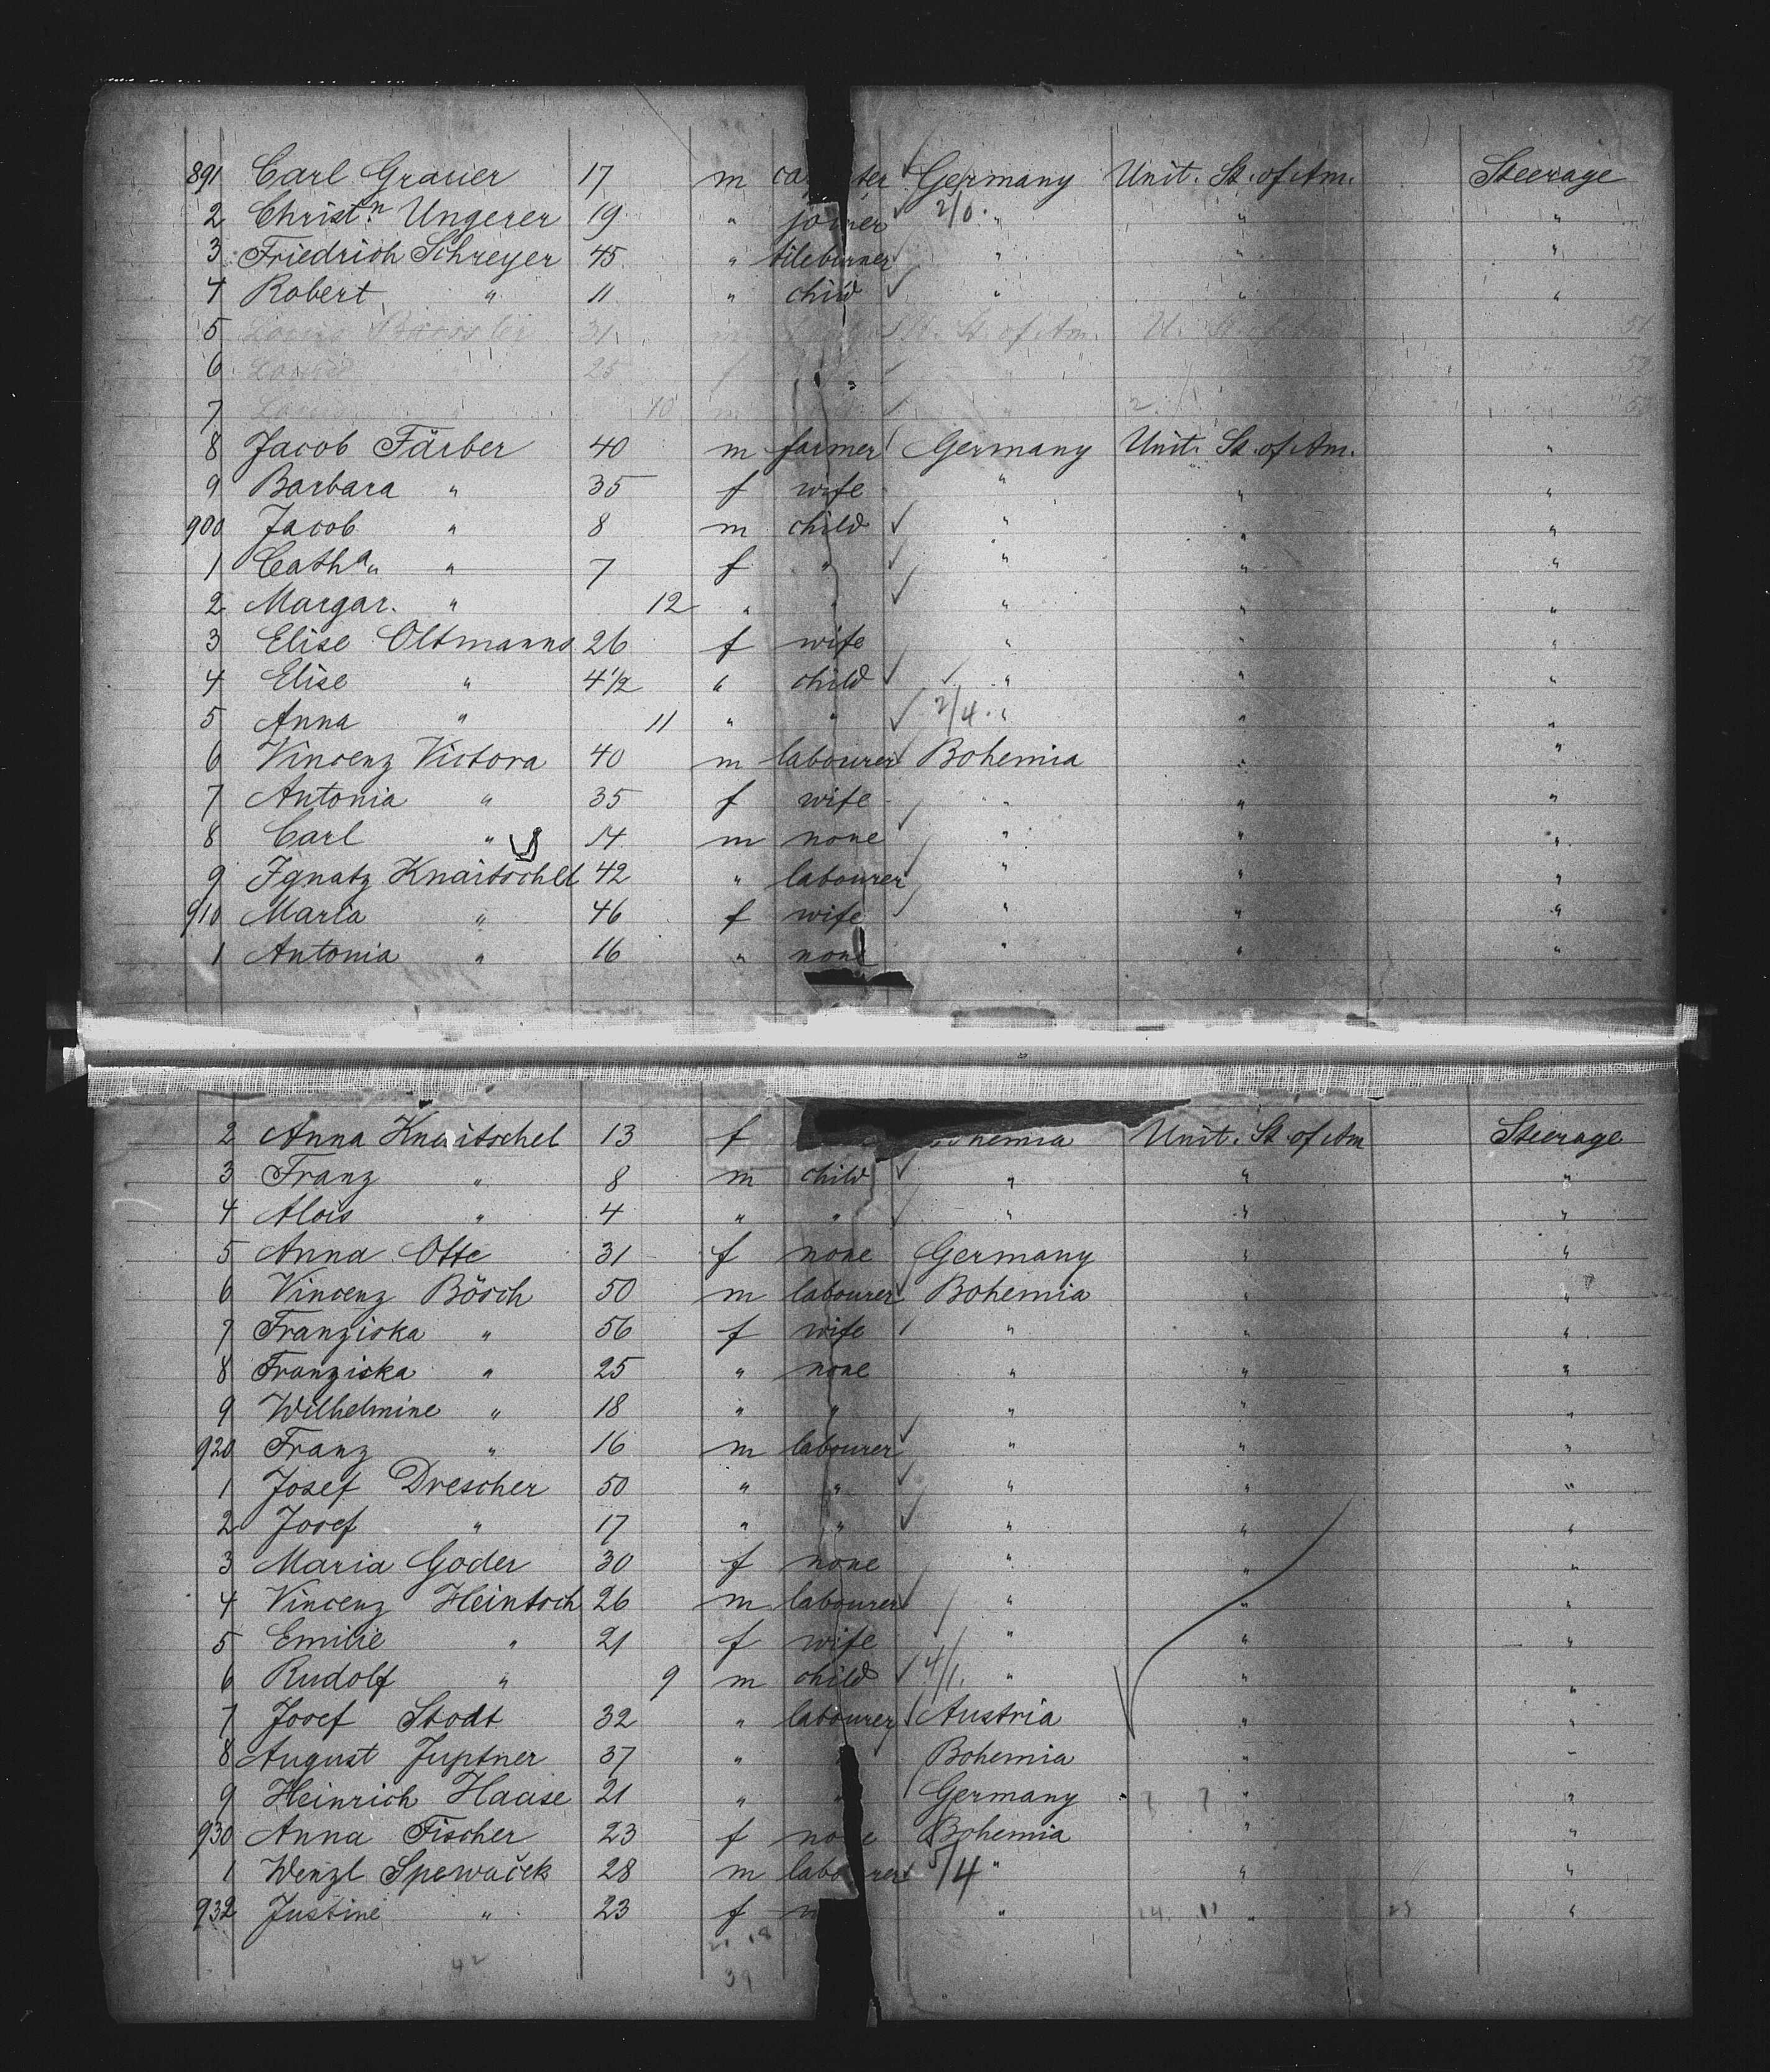 891 Carl Grauer 17 m ca ter Germany Unit. St. of Am. Steerage
2 Christ.n Ungerer 19 " joiner 2/0. " " "
3 Friedrich Schreyer 45 " tileburner " " "
4 Robert " 11 " child " " "
5 31 m St. of Am. U. St. of Am. 51
6 Louise " 25 f " "
7 " 10 m " 2. "
8 Jacob Färber 40 m farmer Germany Unit. St. of Am. "
9 Barbara " 35 f wife " " "
900 Jacob " 8 m child " " "
1 Catha " 7 f " " " "
2 Margar. " 12 " " " " "
3 Elise Oltmanns 26 f wife " " "
4 Elise " 4 1/2 " child " " "
5 Anna " 11 " " 2/4. " " "
6 Vincenz Victora 40 m labourer Bohemia " "
7 Antonia " 35 f wife " " "
8 Carl " 14 m none " " "
9 Ignatz Knaitschel 42 " labourer " " "
910 Maria " 46 f wife " " "
1 Antonia " 16 " none " " "
2 Anna Knaitschel 13 f hemia Unit. St. of Am Steerage
3 Franz " 8 m child " " "
4 Alois " 4 " " " " "
5 Anna Otte 31 f none Germany " "
6 Vincenz Bösch 50 m labourer Bohemia " "
7 Franziska " 56 f wife " " "
8 Franziska " 25 " none " " "
9 Wilhelmine " 18 " " " " "
920 Franz " 16 m labourer " " "
1 Josef Drescher 50 " " " " "
2 Josef " 17 " " " " "
3 Maria Goder 30 f none " " "
4 Vincenz Heintsch 26 m labourer " " "
5 Emilie " 21 f wife " " "
6 Rudolf " 9 m child 4/1. " " "
7 Josef Stodt 32 " labourer Austria " "
8 August Juptner 37 " " Bohemia " "
9 Heinrich Haase 21 " " Germany " "
930 Anna Fischer 23 f no e Bohemia " "
1 Wenzl Spewaček 28 m labourer 5/4 " " "
932 Justine " 23 f n " 14. 11 " 25 "
42 39